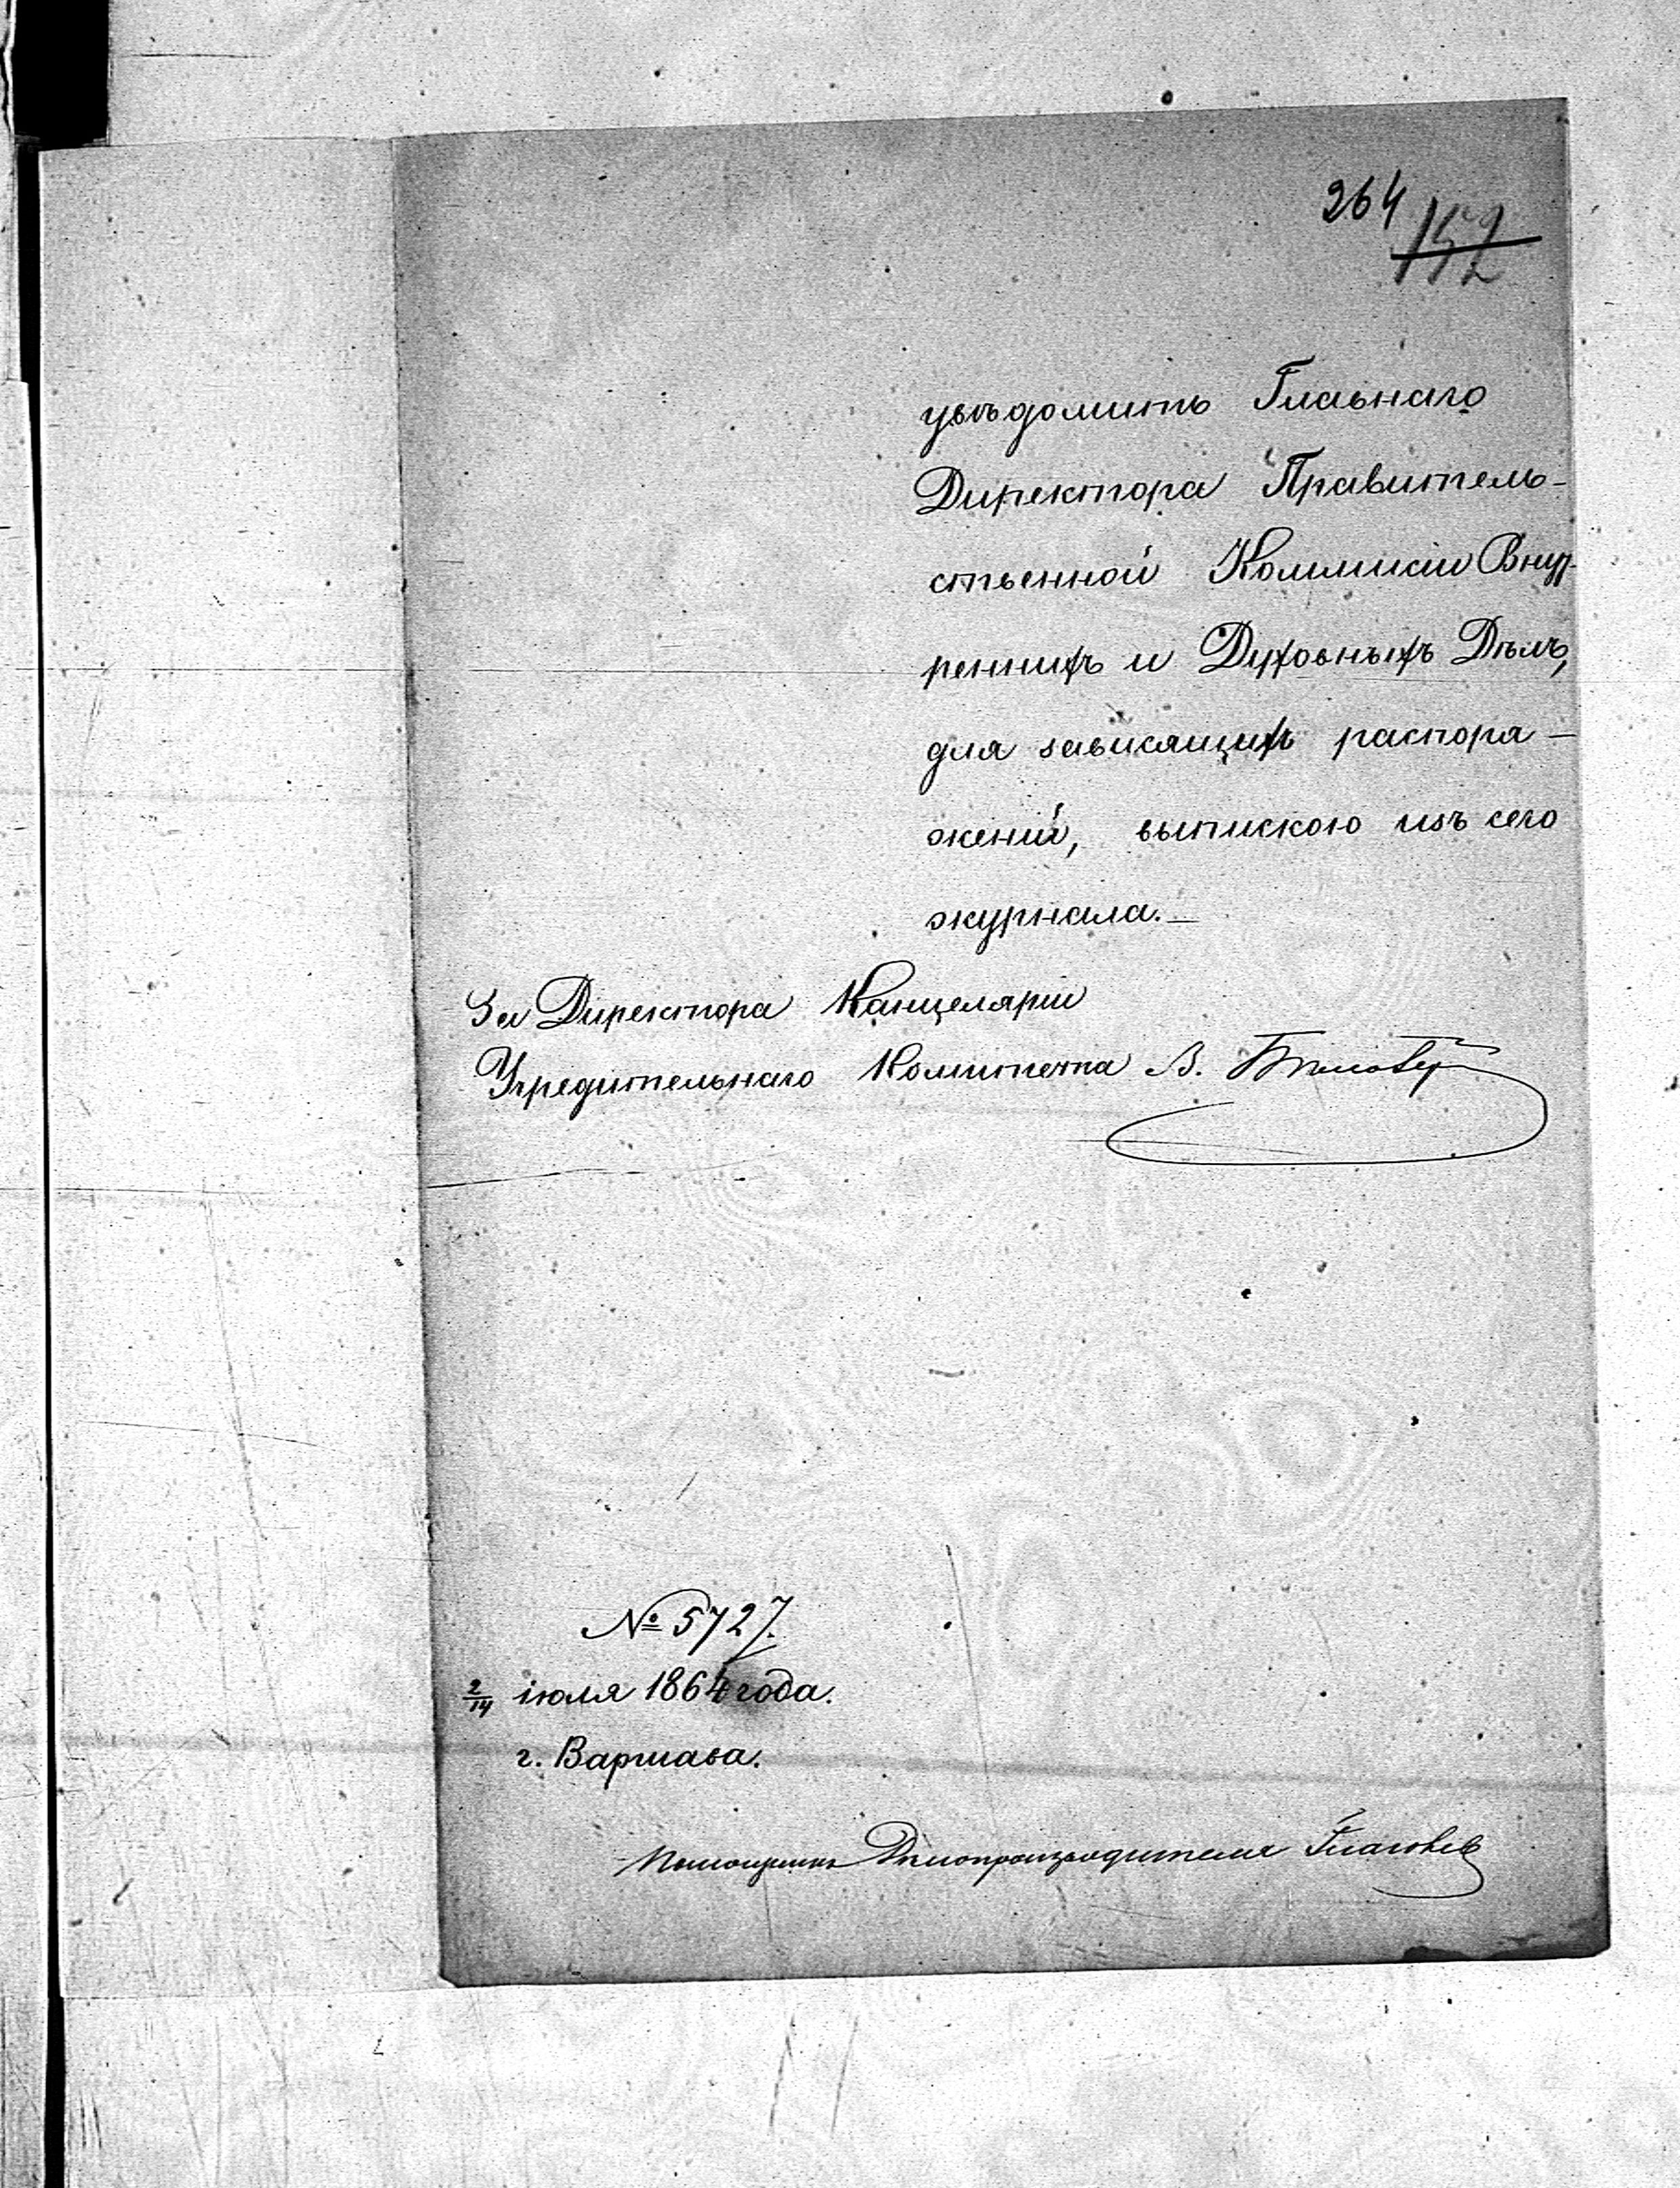 264
152
увѣдомить Главнаго
Директора Правитель-
ственной Коммисіи Внут-
реннихъ и Духовныхъ Дѣлъ,
для зависящихъ распоря-
женій, выпискою изъ сего
журнала.—
За Директора Канцеляріи
Учредительнаго Комитета В.
№ 5727.
2/14 іюля 1864 года.
г. Варшава.
Помощникъ Дѣлопроизводителя